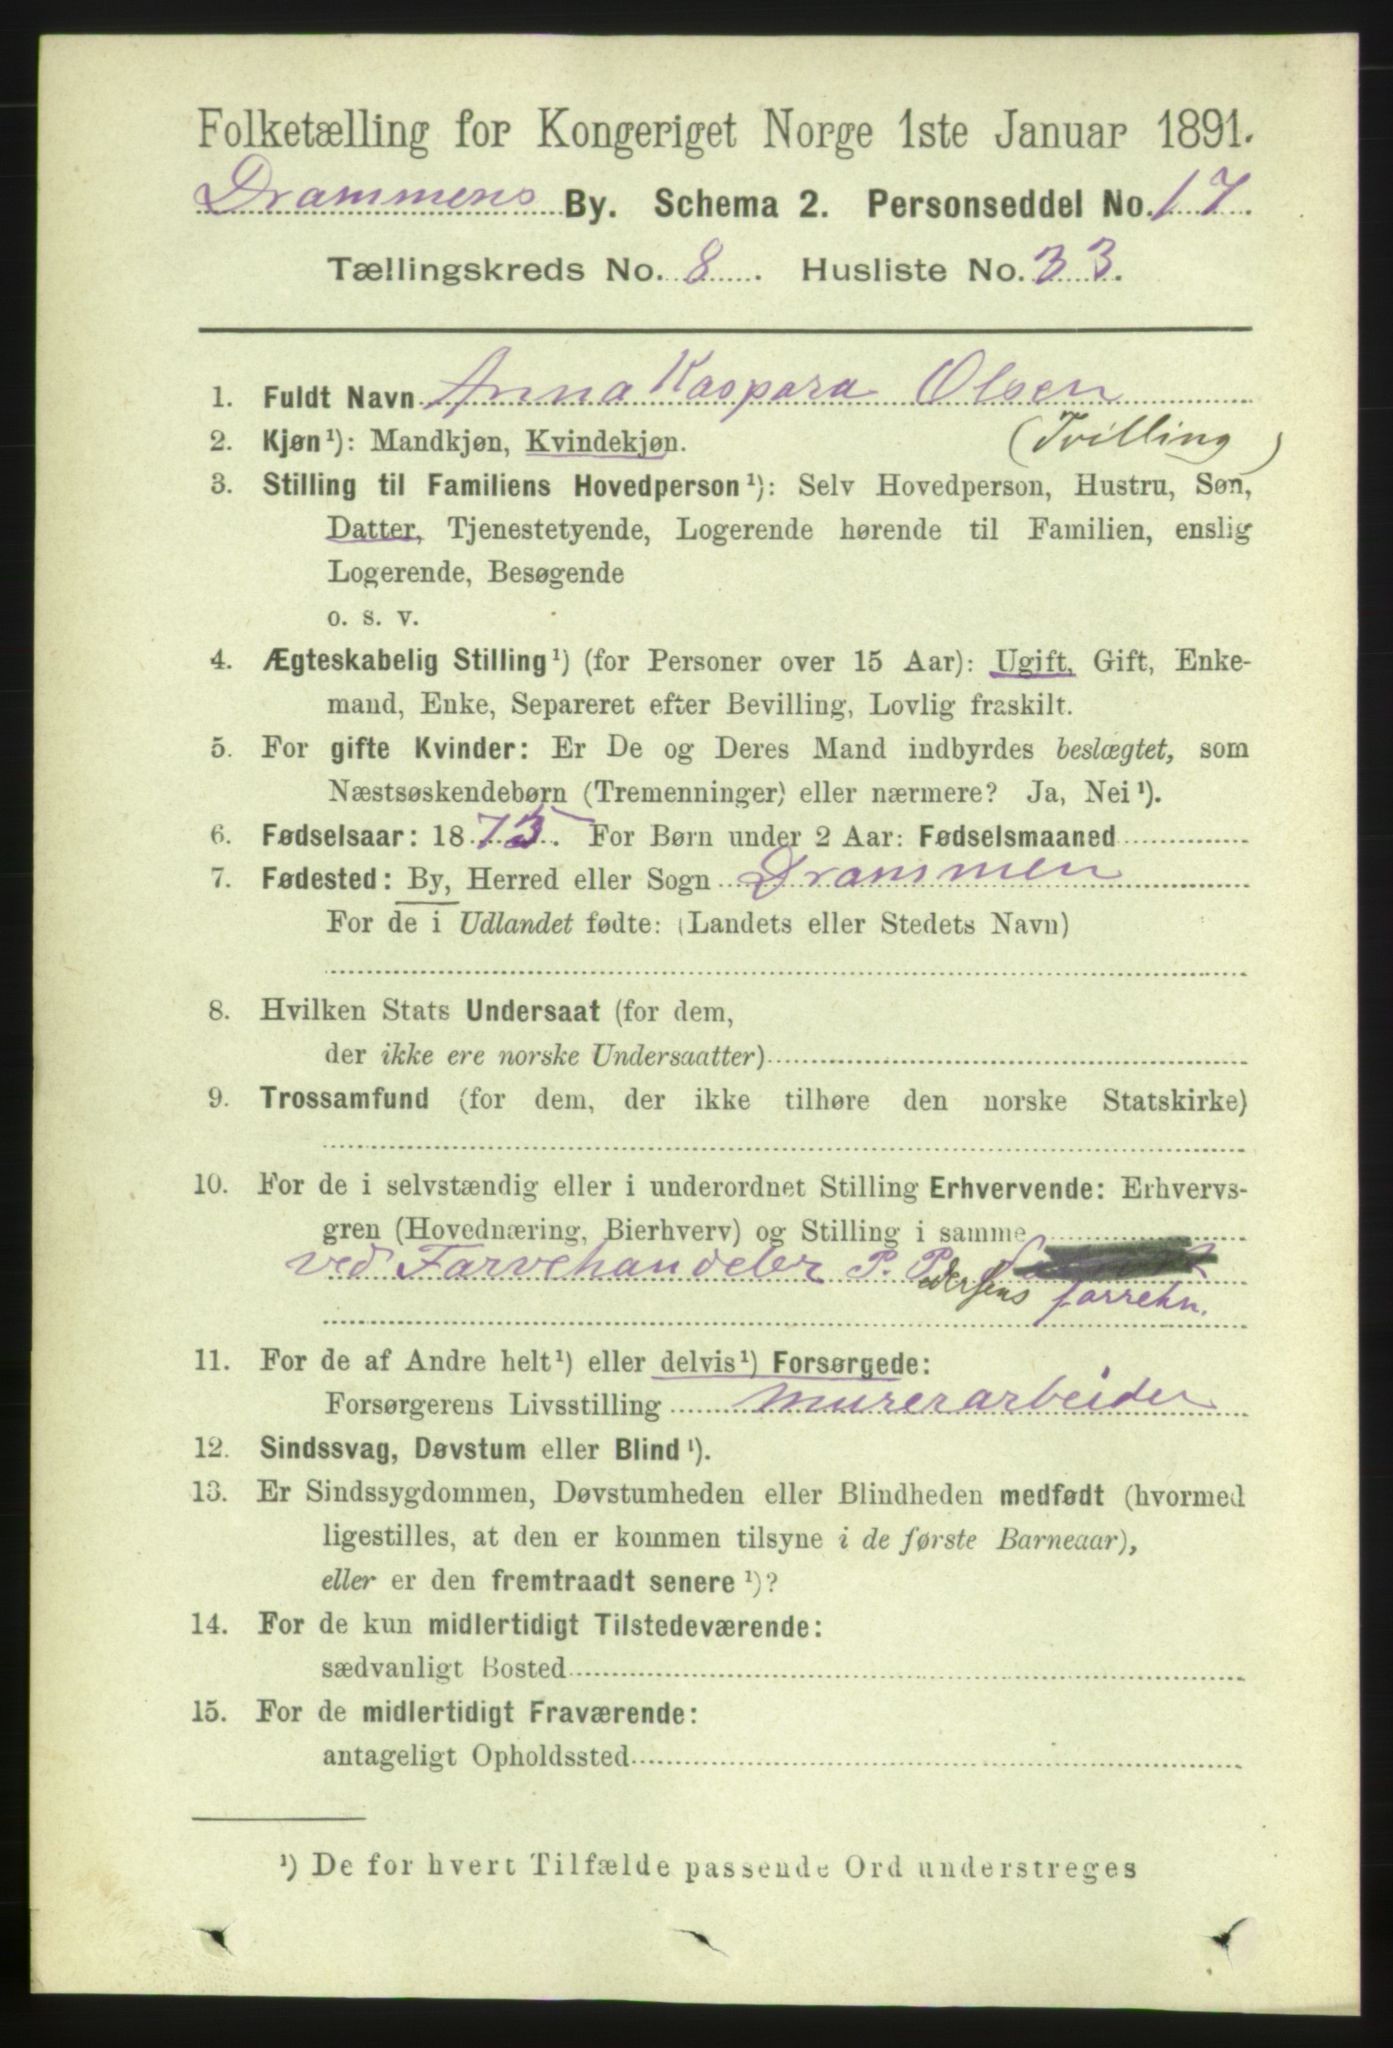 Folketælling for Kongeriget Norge 1ste Januar 1891.
Drammens By. Schema 2. Personseddel No. 17
Tællingskreds No. 8. Husliste No. 33.
1. Fuldt Navn Anna Kaspara Olsen
2. Kjøn¹): Mandkjøn, Kvindekjøn. (Tvilling)
3. Stilling til Familiens Hovedperson¹): Selv Hovedperson, Hustru, Søn,
Datter, Tjenestetyende, Logerende hørende til Familien, enslig
Logerende, Besøgende
o. s. v.
4. Ægteskabelig Stilling¹) (for Personer over 15 Aar): Ugift, Gift, Enke-
mand, Enke, Separeret efter Bevilling, Lovlig fraskilt.
5. For gifte Kvinder: Er De og Deres Mand indbyrdes beslægtet, som
Næstsøskendebørn (Tremenninger) eller nærmere? Ja, Nei¹).
6. Fødselsaar: 1873. For Børn under 2 Aar: Fødselsmaaned
7. Fødested: By, Herred eller Sogn Drammen
For de i Udlandet fødte: (Landets eller Stedets Navn)
8. Hvilken Stats Undersaat (for dem,
der ikke ere norske Undersaatter)
9. Trossamfund (for dem, der ikke tilhøre den norske Statskirke)
10. For de i selvstændig eller i underordnet Stilling Erhvervende: Erhvervs-
gren (Hovednæring, Bierhverv) og Stilling i samme
ved Farvehandeler P. Pedersens forretn.
11. For de af Andre helt¹) eller delvis¹) Forsørgede:
Forsørgerens Livsstilling murerarbeider
12. Sindssvag, Døvstum eller Blind¹).
13. Er Sindssygdommen, Døvstumheden eller Blindheden medfødt (hvormed
ligestilles, at den er kommen tilsyne i de første Barneaar),
eller er den fremtraadt senere¹)?
14. For de kun midlertidigt Tilstedeværende:
sædvanligt Bosted
15. For de midlertidigt Fraværende:
antageligt Opholdssted
¹) De for hvert Tilfælde passende Ord understreges